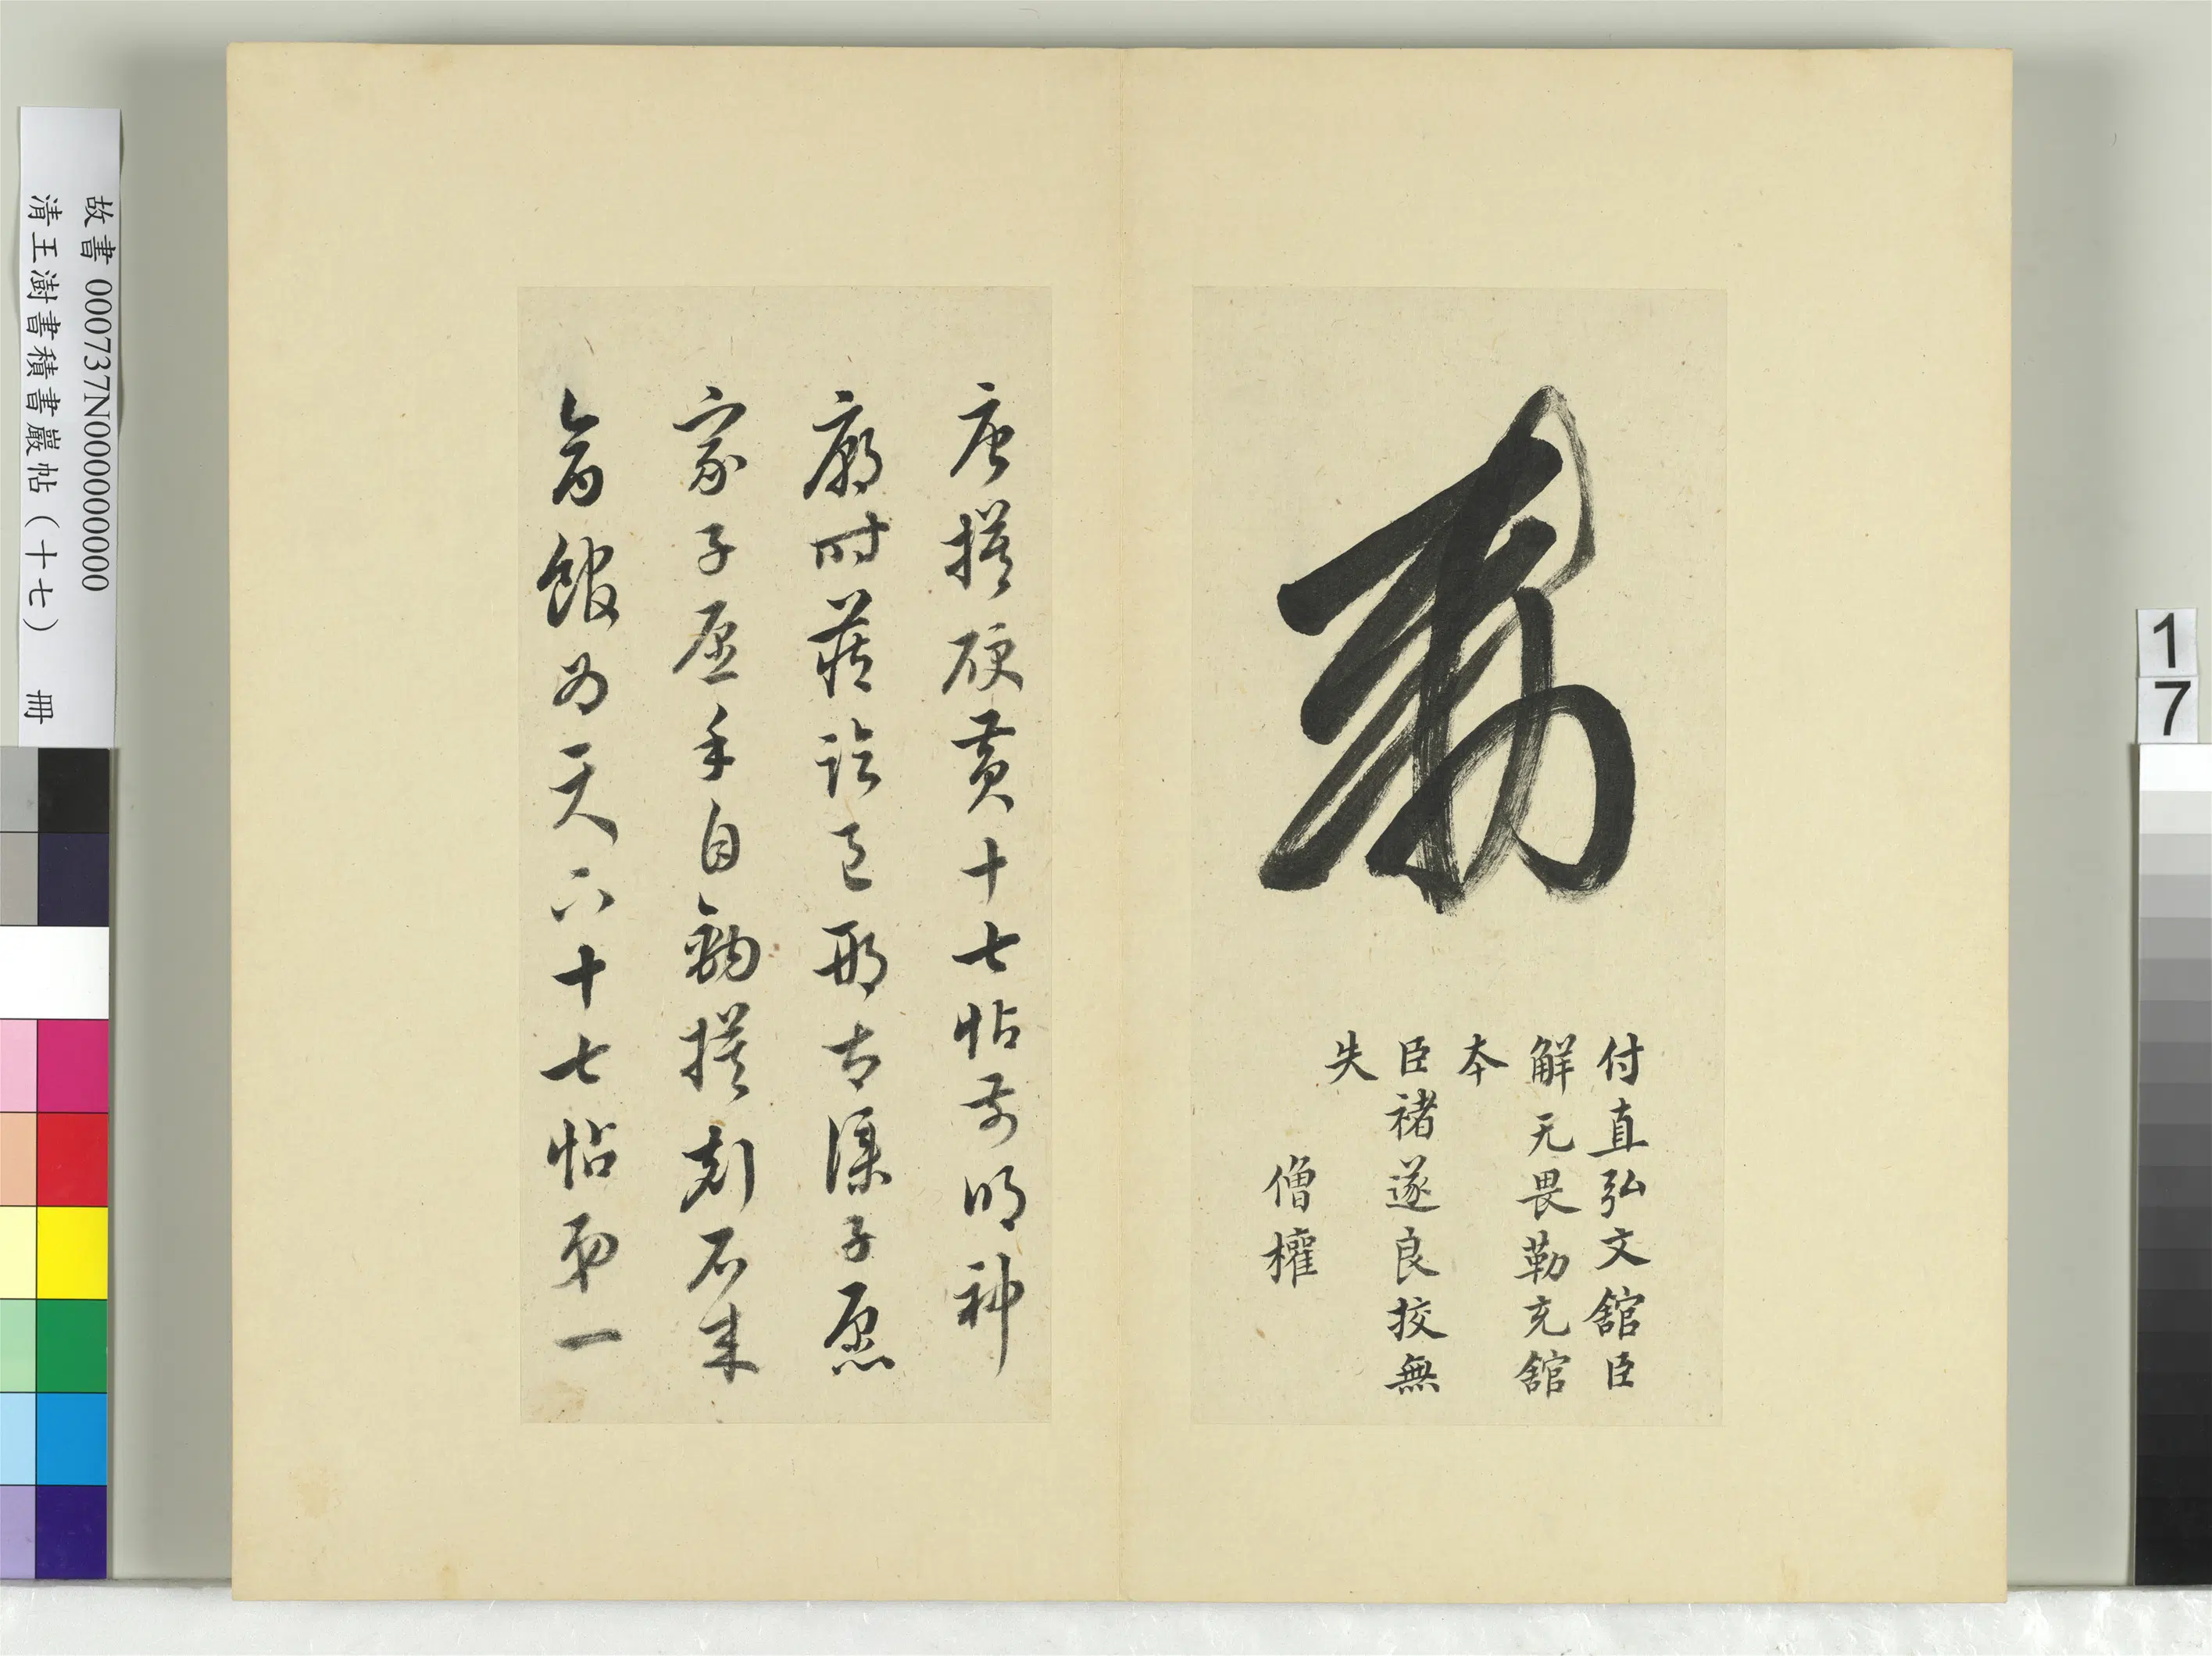 勅
付直弘文舘臣
解无畏勒充舘
本
臣褚遂良挍無
失
僧權
唐摸硬黃十七帖前明神
廟時藏臨邑邢太僕子愿
家子愿手自鉤摸刻石來
禽館為天下十七帖第一
故書 000737N000000000
清王澍書積書巖帖（十七） 冊
1
7